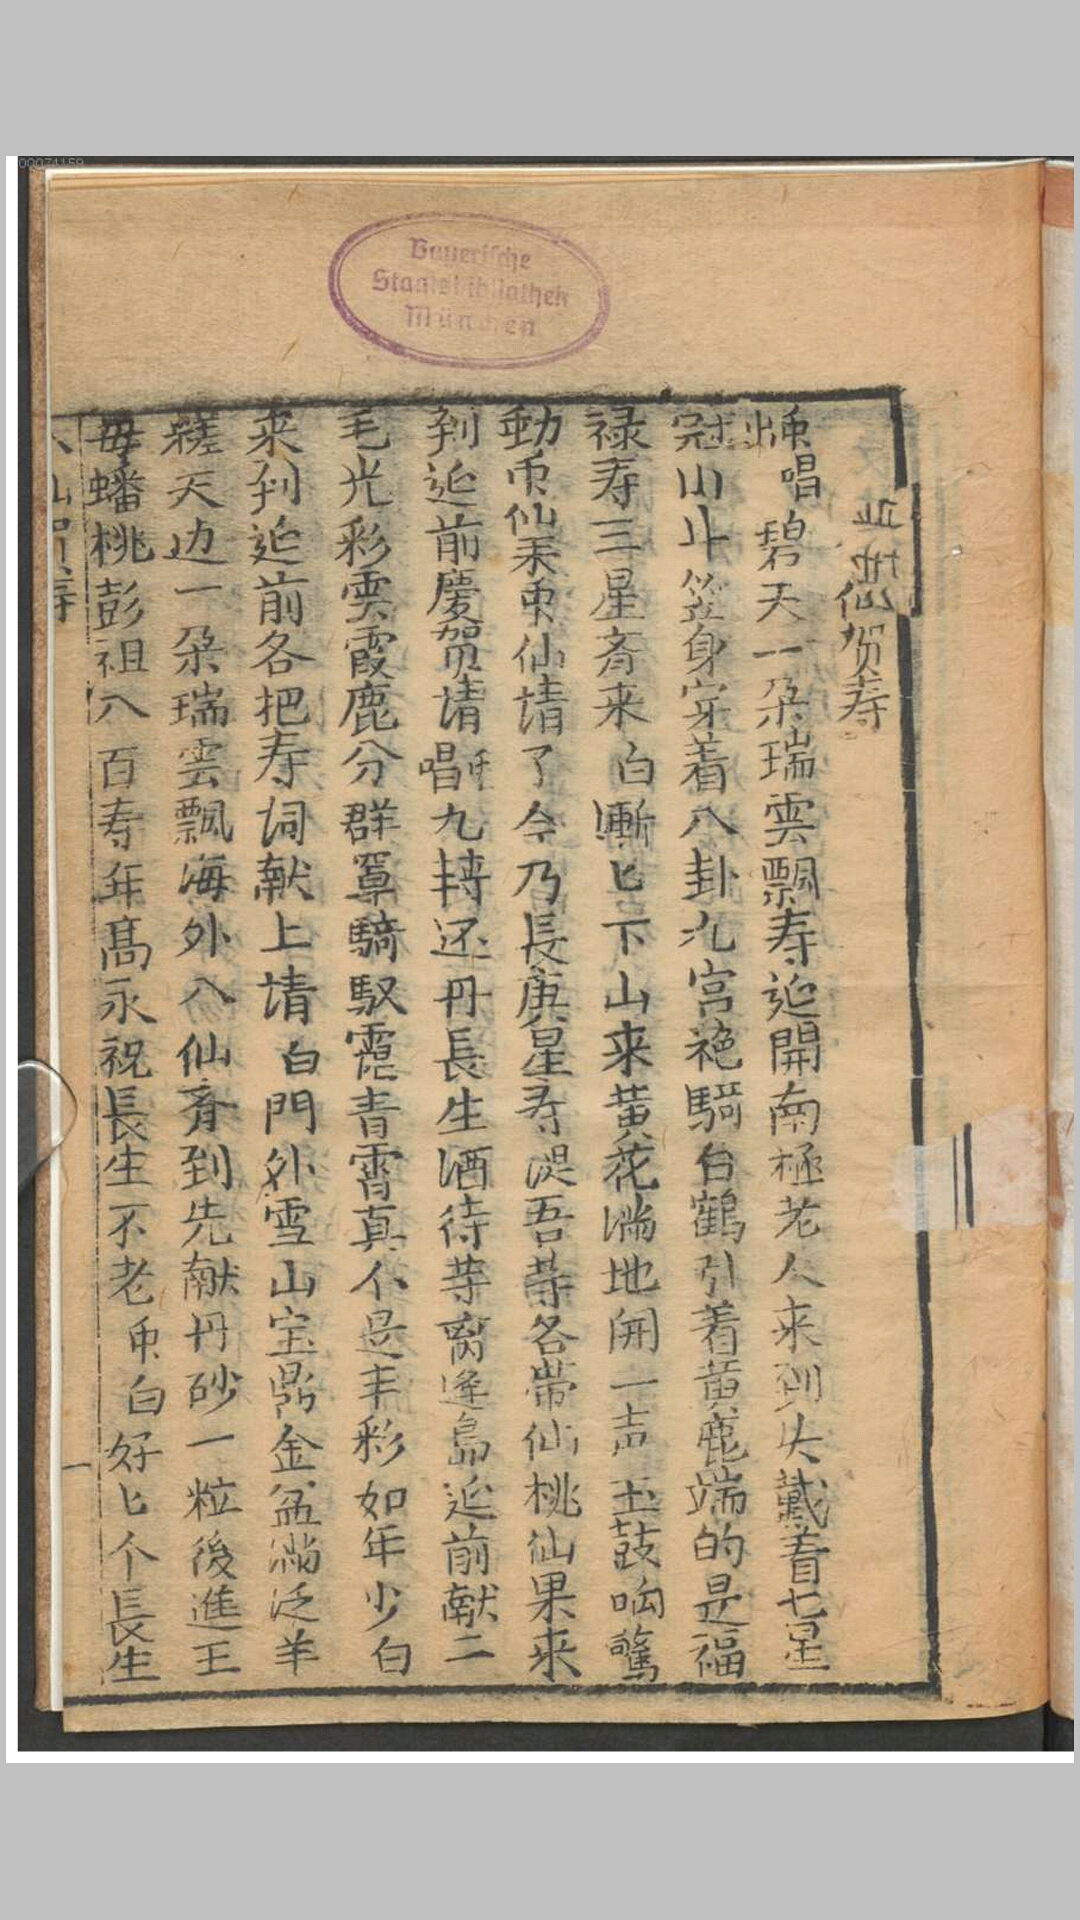 00074159
Bayerische
Staatsbibliothek
München
地仙贺寿
唱 碧天一朶瑞雲飄寿迎開南極老人来到头戴着七星
冠山斗笠身穿着八卦九宫袍騎白鶴引着黄鹿端的是福
禄寿三星斉来 白 漸匕下山来黄花满地開一声玉鼓响驚
動 仙 仙請了今乃長庚星寿 吾等各帶仙桃仙果来
到 前慶贺請 唱 九转还丹長生酒待等离逢島 前献二
毛光彩雲霞鹿分群 騎馭 青霄真个是丰彩如年少 白
来到 前各把寿词献上請 白 門外雪山宝鼎金盆满泛羊
羔天边一朶瑞雲飄海外八仙斉到先献丹砂一粒後進王
母蟠桃彭祖八百寿年髙永祝長生不老 白 好匕个長生
八仙贺寿
一